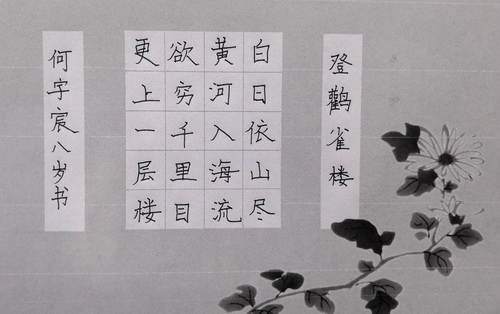 登鹳雀楼
白日依山尽
黄河入海流
欲穷千里目
更上一层楼
何宇宸八岁书